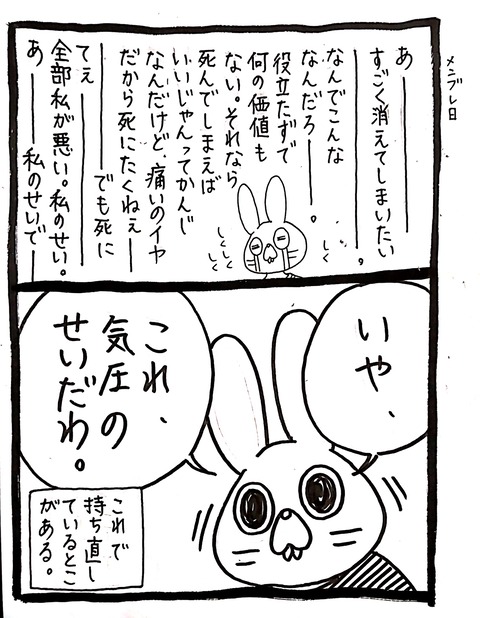 メンブレ日
あ———
すごく消えてしまいたい———。
なんでこんな
なんだろ———。
役立たずで
何の価値も
ない。それなら
死んでしまえば
いいじゃんってかんじ
なんだけど、痛いのイヤ
だから死にたくねぇ———
てぇ———でも死に
全部私が悪い。私のせい。
あ———私のせいで———
しくしく
しくしく
しく
いや、
これ、
気圧の
せいだわ。
これで
持ち直し
ているとこ
がある。